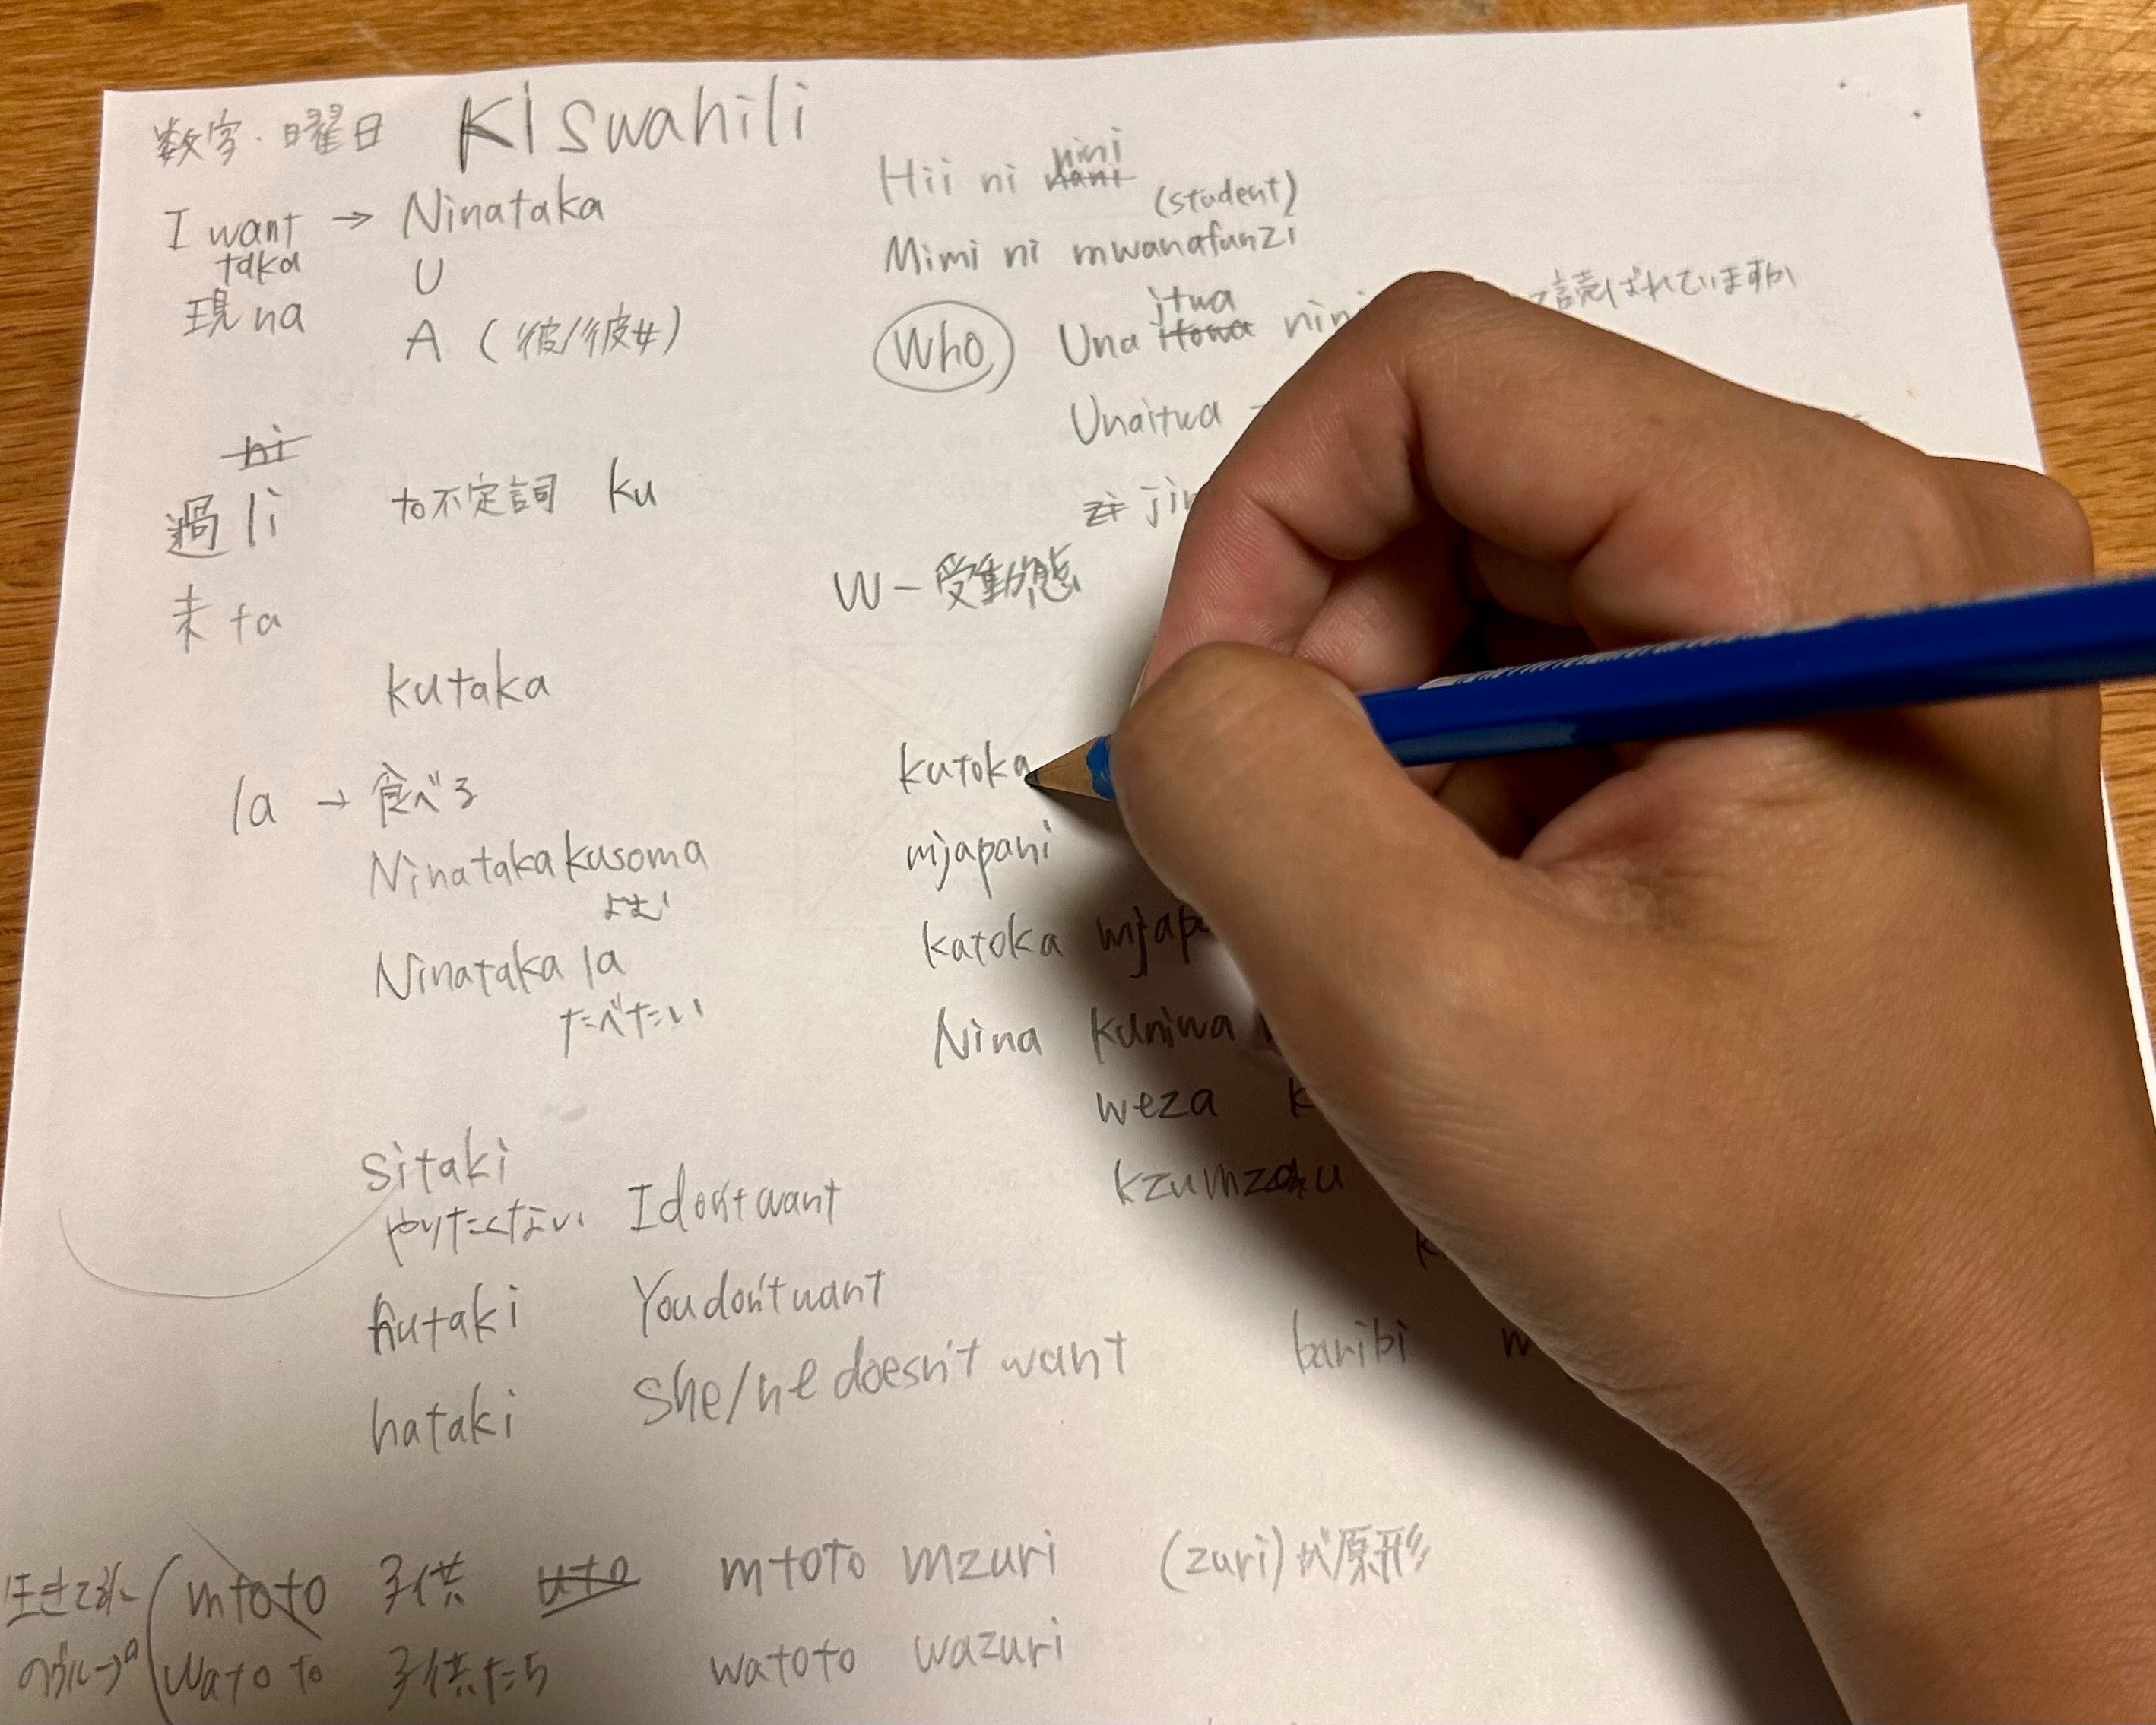 数字・曜日 KIswahili
I want → Ninataka
taka
U
現 na
A (彼/彼女)
ni
過 li
to不定詞 ku
未 ta
kutaka
la → 食べる
Ninataka kusoma
よむ
Ninataka la
たべたい
sitaki
やりたくない I don't want
hutaki You don't want
hataki She/he doesn't want
Hii ni nini
(student)
Mimi ni mwanafunzi
Who Una itwa nini
読ばれていますか
Unaitwa
W - 受動態
kutoka
mjapani
katoka
Nina kuniwa
weza
karibi
生きてる
mtoto 子供 uto mtoto mzuri (zuri)が原形
watoto 子供たち watoto wazuri